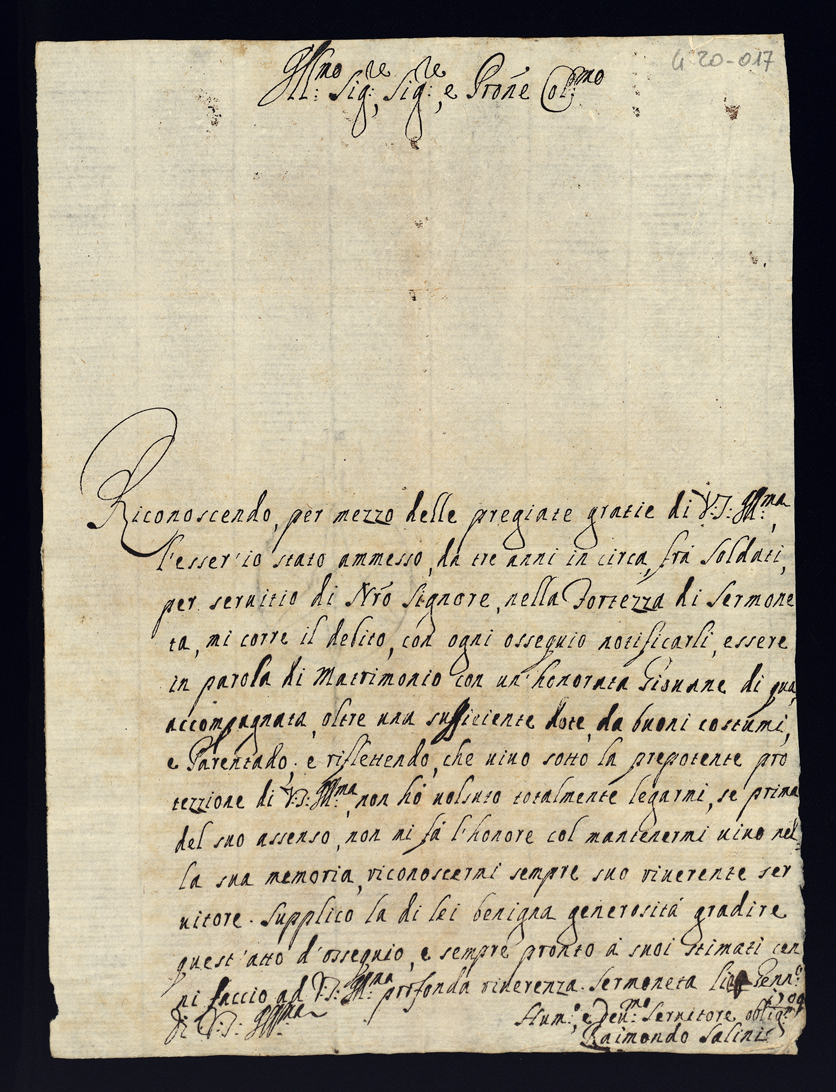 G 20-017
Ill:mo Sig:re, Sig:re, e Prone Col:mo
Riconoscendo, per mezzo delle pregiate gratie di V.S: Ill:ma,
l'esser'io stato ammesso, da tre anni in circa, frà Soldati,
per seruitio di Nro Signore, nella Fortezza di Sermone
ta, mi corre il debito, con ogni ossequio notificarli, essere
in parola di Matrimonio con un'honorata Giouane di qua,
accompagnata, oltre una sufficiente dote, da buoni costumi,
e Parentado; e riflettendo, che uiuo sotto la prepotente pro
tezzione di V.S: Ill:ma, non hò uolsuto totalmente legarmi, se prima
del suo assenso, non mi fà l'honore col mantenermi uiuo nel
la sua memoria, riconoscermi sempre suo riuerente ser
uitore. Supplico la di lei benigna generosità gradire
quest'atto d'ossequio, e sempre pronto à suoi stimati cen
ni faccio ad V.S: Ill:ma profonda riuerenza. Sermoneta li Genn:o
di V.S: Ill:ma Hum:o, e Deu:mo Seruitore oblig:o
Raimondo Salini